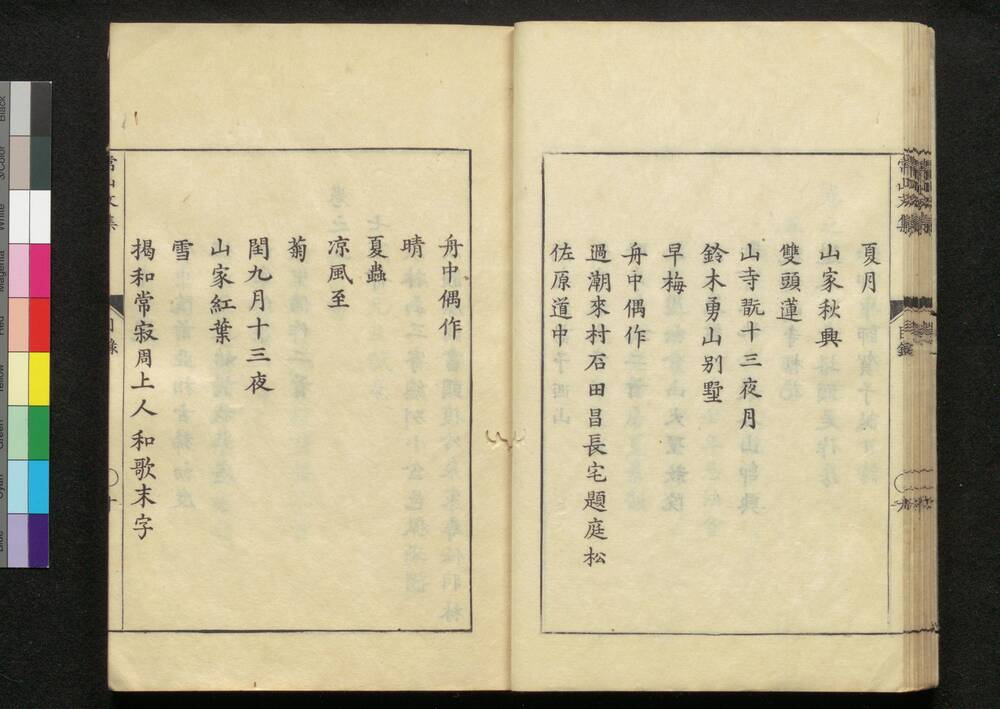 夏月
山家秋興
雙頭蓮
山寺翫十三夜月
鈴木勇山别墅
早梅
舟中偶作
過潮來村石田昌長宅題庭松
佐原道中
舟中偶作
晴
夏蟲
凉風至
菊
閏九月十三夜
山家紅葉
雪
揭和常寂周上人和歌末字
常山文集
目錄